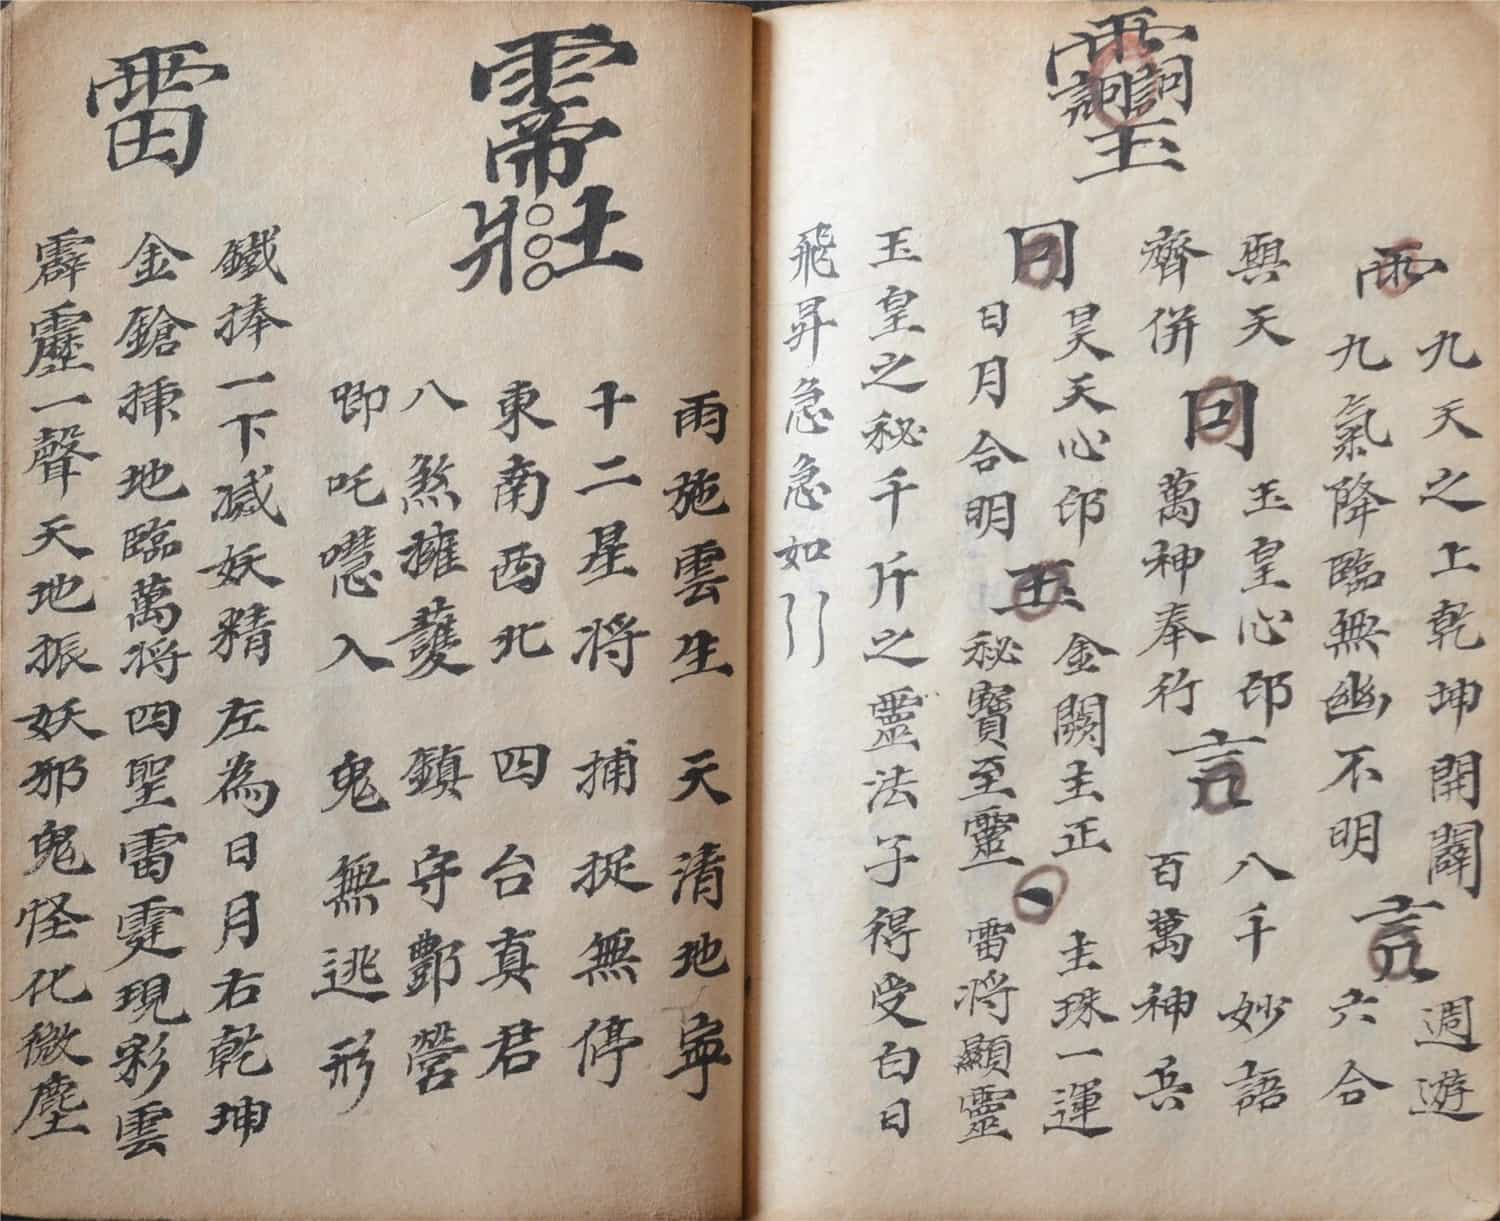 雨
九天之上乾坤開闢
九氣降臨無幽不明
言
週遊
六合
與天
齊併
玉皇心印
萬神奉行
言
八千妙語
百萬神兵
昊天心印
日月合明
玉
金闕主正
秘寶至靈
、
主珠一運
雷将顯靈
玉皇之秘千斤之靈法子得受白日
飛昇急急如
雨施雲生 天清地寧
十二星将 捕捉無停
東南西北 四台真君
八煞擁護 鎮守酆營
唧吒入 鬼無逃形
雷
鐵捧一下滅妖精左為日月右乾坤
金鎗揷地臨萬将四聖雷霆現彩雲
霹靂一聲天地振妖邪鬼怪化微塵